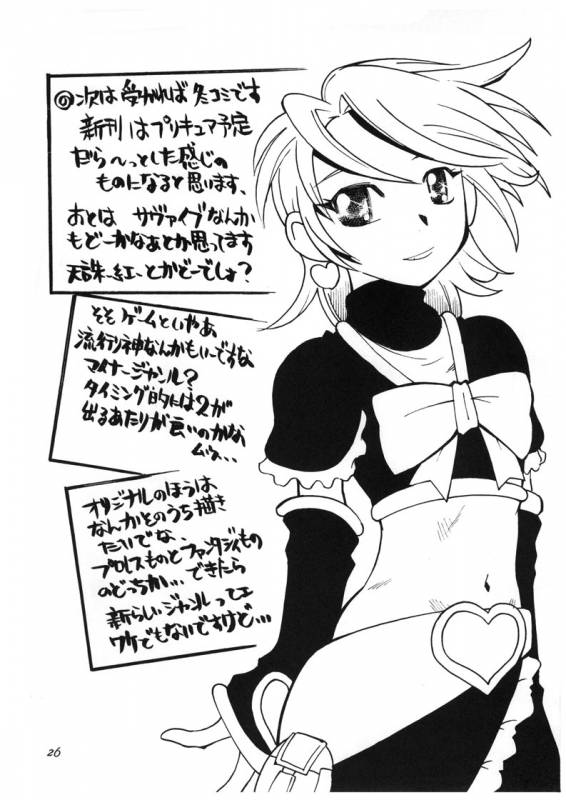 ◎次は受かれば冬コミです
新刊はプリキュア予定
だら〜っとした感じの
ものになると思います、
あとは サヴァイブなんか
もどーかなあとか思ってます
天誅紅ーとかどーでしょ?
そそ ゲームといやあ
流行り神なんかもいーですな
マイナージャンル?
タイミング的には2が
出るあたりが良いのかな
ムゥ…
オリジナルのほうは
なんかそのうち描き
たいでな、
プロレスものとファンタジィもの
のどっちか… できたら
新らしいジャンルってェ
ワケでもないですけど…
26